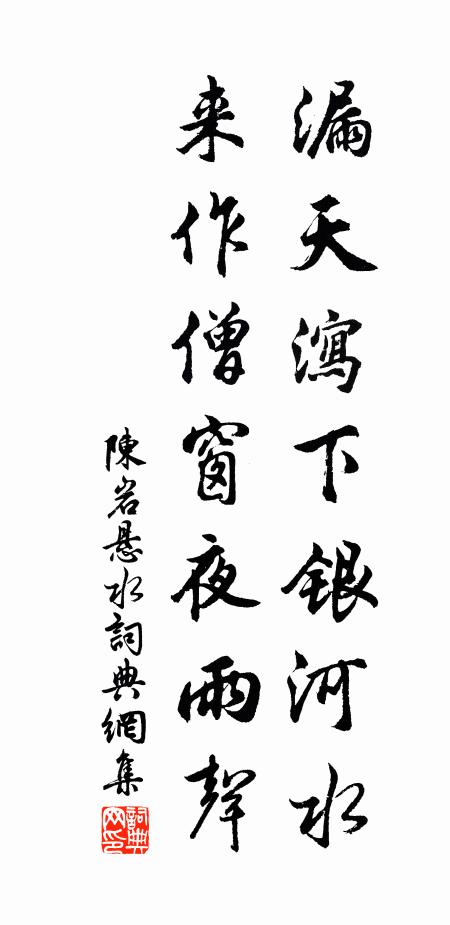 漏天瀉下銀河水
来作僧窗夜雨聲
陳岩悬水詞典網集
詞典网印